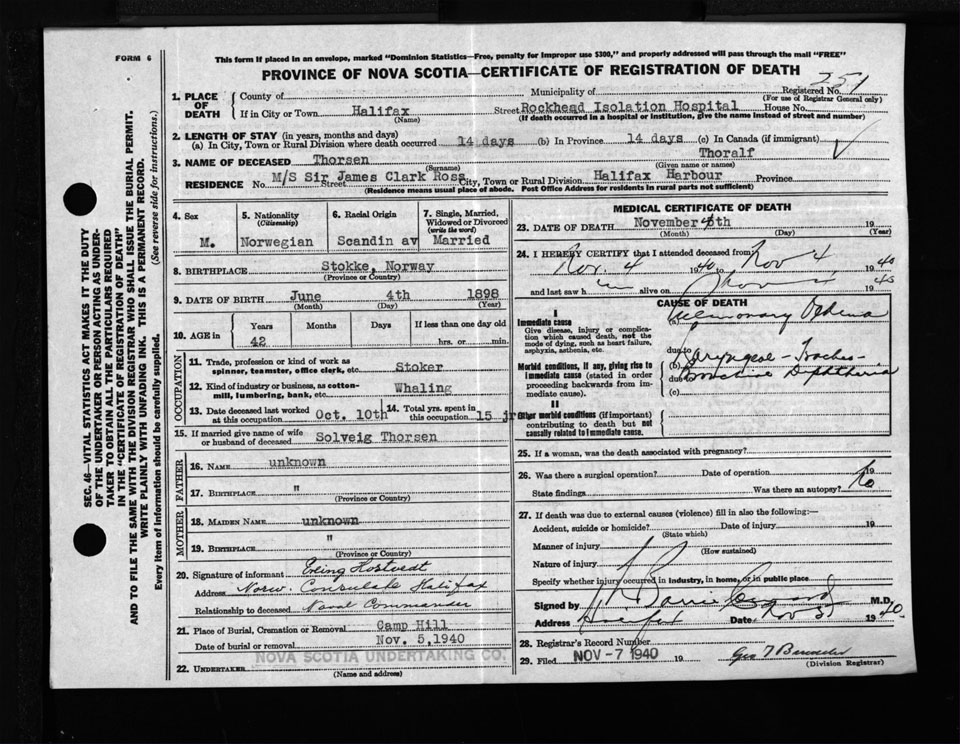 FORM 6
This form if placed in an envelope, marked "Dominion Statistics—Free, penalty for improper use $300," and properly addressed will pass through the mail "FREE"
PROVINCE OF NOVA SCOTIA—CERTIFICATE OF REGISTRATION OF DEATH
Registered No.
(For use of Registrar General only)
1. PLACE OF DEATH
County of
Municipality of
If in City or Town Halifax Street Rockhead Isolation Hospital House No.
(Name) (If death occurred in a hospital or institution, give the name instead of street and number)
2. LENGTH OF STAY (in years, months and days)
(a) In City, Town or Rural Division where death occurred 14 days (b) In Province 14 days (c) In Canada (if immigrant)
3. NAME OF DECEASED Thorsen Thoralf
(Surname) (Given name or names)
RESIDENCE No. M/S Sir James Clark Ross Street City, Town or Rural Division Halifax Harbour Province
(Residence means usual place of abode. Post Office Address for residents in rural parts not sufficient)
4. Sex
M.
5. Nationality
(Citizenship)
Norwegian
6. Racial Origin
Scandin av
7. Single, Married, Widowed or Divorced
(write the word)
Married
8. BIRTHPLACE Stokke, Norway
(Province or Country)
9. DATE OF BIRTH June 4th 1898
(Month) (Day) (Year)
10. AGE in
Years Months Days If less than one day old
42 hrs. or min.
OCCUPATION
11. Trade, profession or kind of work as spinner, teamster, office clerk, etc. Stoker
12. Kind of industry or business, as cotton-mill, lumbering, bank, etc. Whaling
13. Date deceased last worked at this occupation Oct. 10th
14. Total yrs. spent in this occupation 15 jr
15. If married give name of wife or husband of deceased Solveig Thorsen
FATHER
16. NAME unknown
17. BIRTHPLACE "
(Province or Country)
MOTHER
18. MAIDEN NAME unknown
19. BIRTHPLACE "
(Province or Country)
20. Signature of informant
Address Norw. Consulate Halifax
Relationship to deceased Naval Commander
21. Place of Burial, Cremation or Removal Camp Hill
Date of burial or removal Nov. 5,1940
22. UNDERTAKER NOVA SCOTIA UNDERTAKING CO.
(Name and address)
MEDICAL CERTIFICATE OF DEATH
23. DATE OF DEATH November 19
(Month) (Day) (Year)
24. I HEREBY CERTIFY that I attended deceased from
Nov. 4 1940 to Nov 4 1940
and last saw h im alive on Nov 1940
CAUSE OF DEATH
I
Immediate cause
Give disease, injury or complication which caused death, not the mode of dying, such as heart failure, asphyxia, asthenia, etc.
(a) Pulmonary Oedema
due to
Morbid conditions, if any, giving rise to immediate cause (stated in order proceeding backwards from immediate cause).
(b) Laryngeal - Tracheo
due to Bronchial Diphtheria
(c)
II
Other morbid conditions (if important) contributing to death but not causally related to immediate cause.
25. If a woman, was the death associated with pregnancy?
26. Was there a surgical operation? Date of operation 19
State findings Was there an autopsy? No
27. If death was due to external causes (violence) fill in also the following:—
Accident, suicide or homicide? Date of injury 19
(State which)
Manner of injury
(How sustained)
Nature of injury
Specify whether injury occurred in industry, in home, or in public place
Signed by M.D.
Address Halifax Date Nov 5 1940
28. Registrar's Record Number
29. Filed NOV -7 1940 19
(Division Registrar)
SEC. 46—VITAL STATISTICS ACT MAKES IT THE DUTY
OF THE UNDERTAKER OR PERSON ACTING AS UNDER-
TAKER TO OBTAIN ALL THE PARTICULARS REQUIRED
IN THE "CERTIFICATE OF REGISTRATION OF DEATH"
AND TO FILE THE SAME WITH THE DIVISION REGISTRAR WHO SHALL ISSUE THE BURIAL PERMIT.
WRITE PLAINLY WITH UNFADING INK. THIS IS A PERMANENT RECORD.
Every item of information should be carefully supplied. (See reverse side for instructions.)